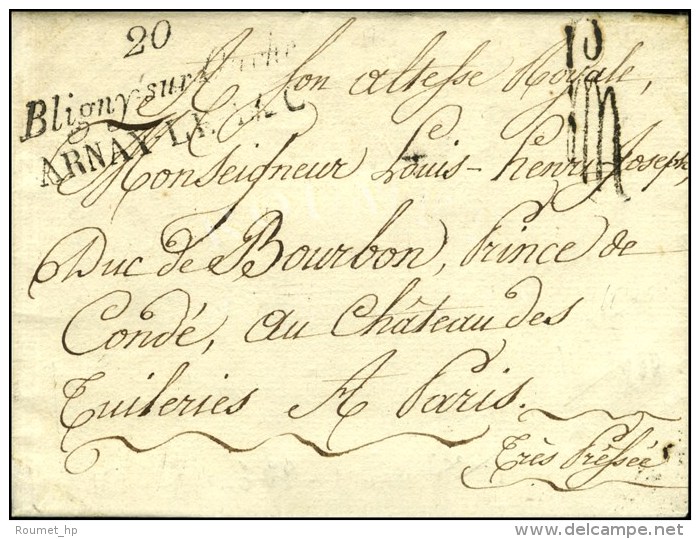 20
Bligny sur Ouche
ARNAY LE DUC
A Son altesse Royale,
Monseigneur Louis-henry Joseph,
Duc de Bourbon, Prince de
Condé, au Château des
Tuileries A Paris.
Très Pressée
Roumet_hp
©delcampe.net